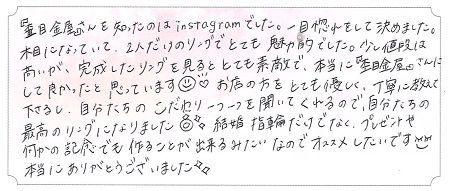 杢目金屋さんを知ったのはinstagramでした。一目惚れをして決めました。
木目になっていて、2人だけのリングでとても魅力的でした。少し値段は
高いが、完成したリングを見るととても素敵で、本当に杢目金屋さんに
して良かったと思っています お店の方をとても優しく、丁寧に教えて
下さるし、自分たちのこだわり一つ一つを聞いてくれるので、自分たちの
最高のリングになりました 結婚指輪だけでなく、プレゼントや
何かの記念でも作ることが出来るみたいなのでオススメしたいです
本当にありがとうございました